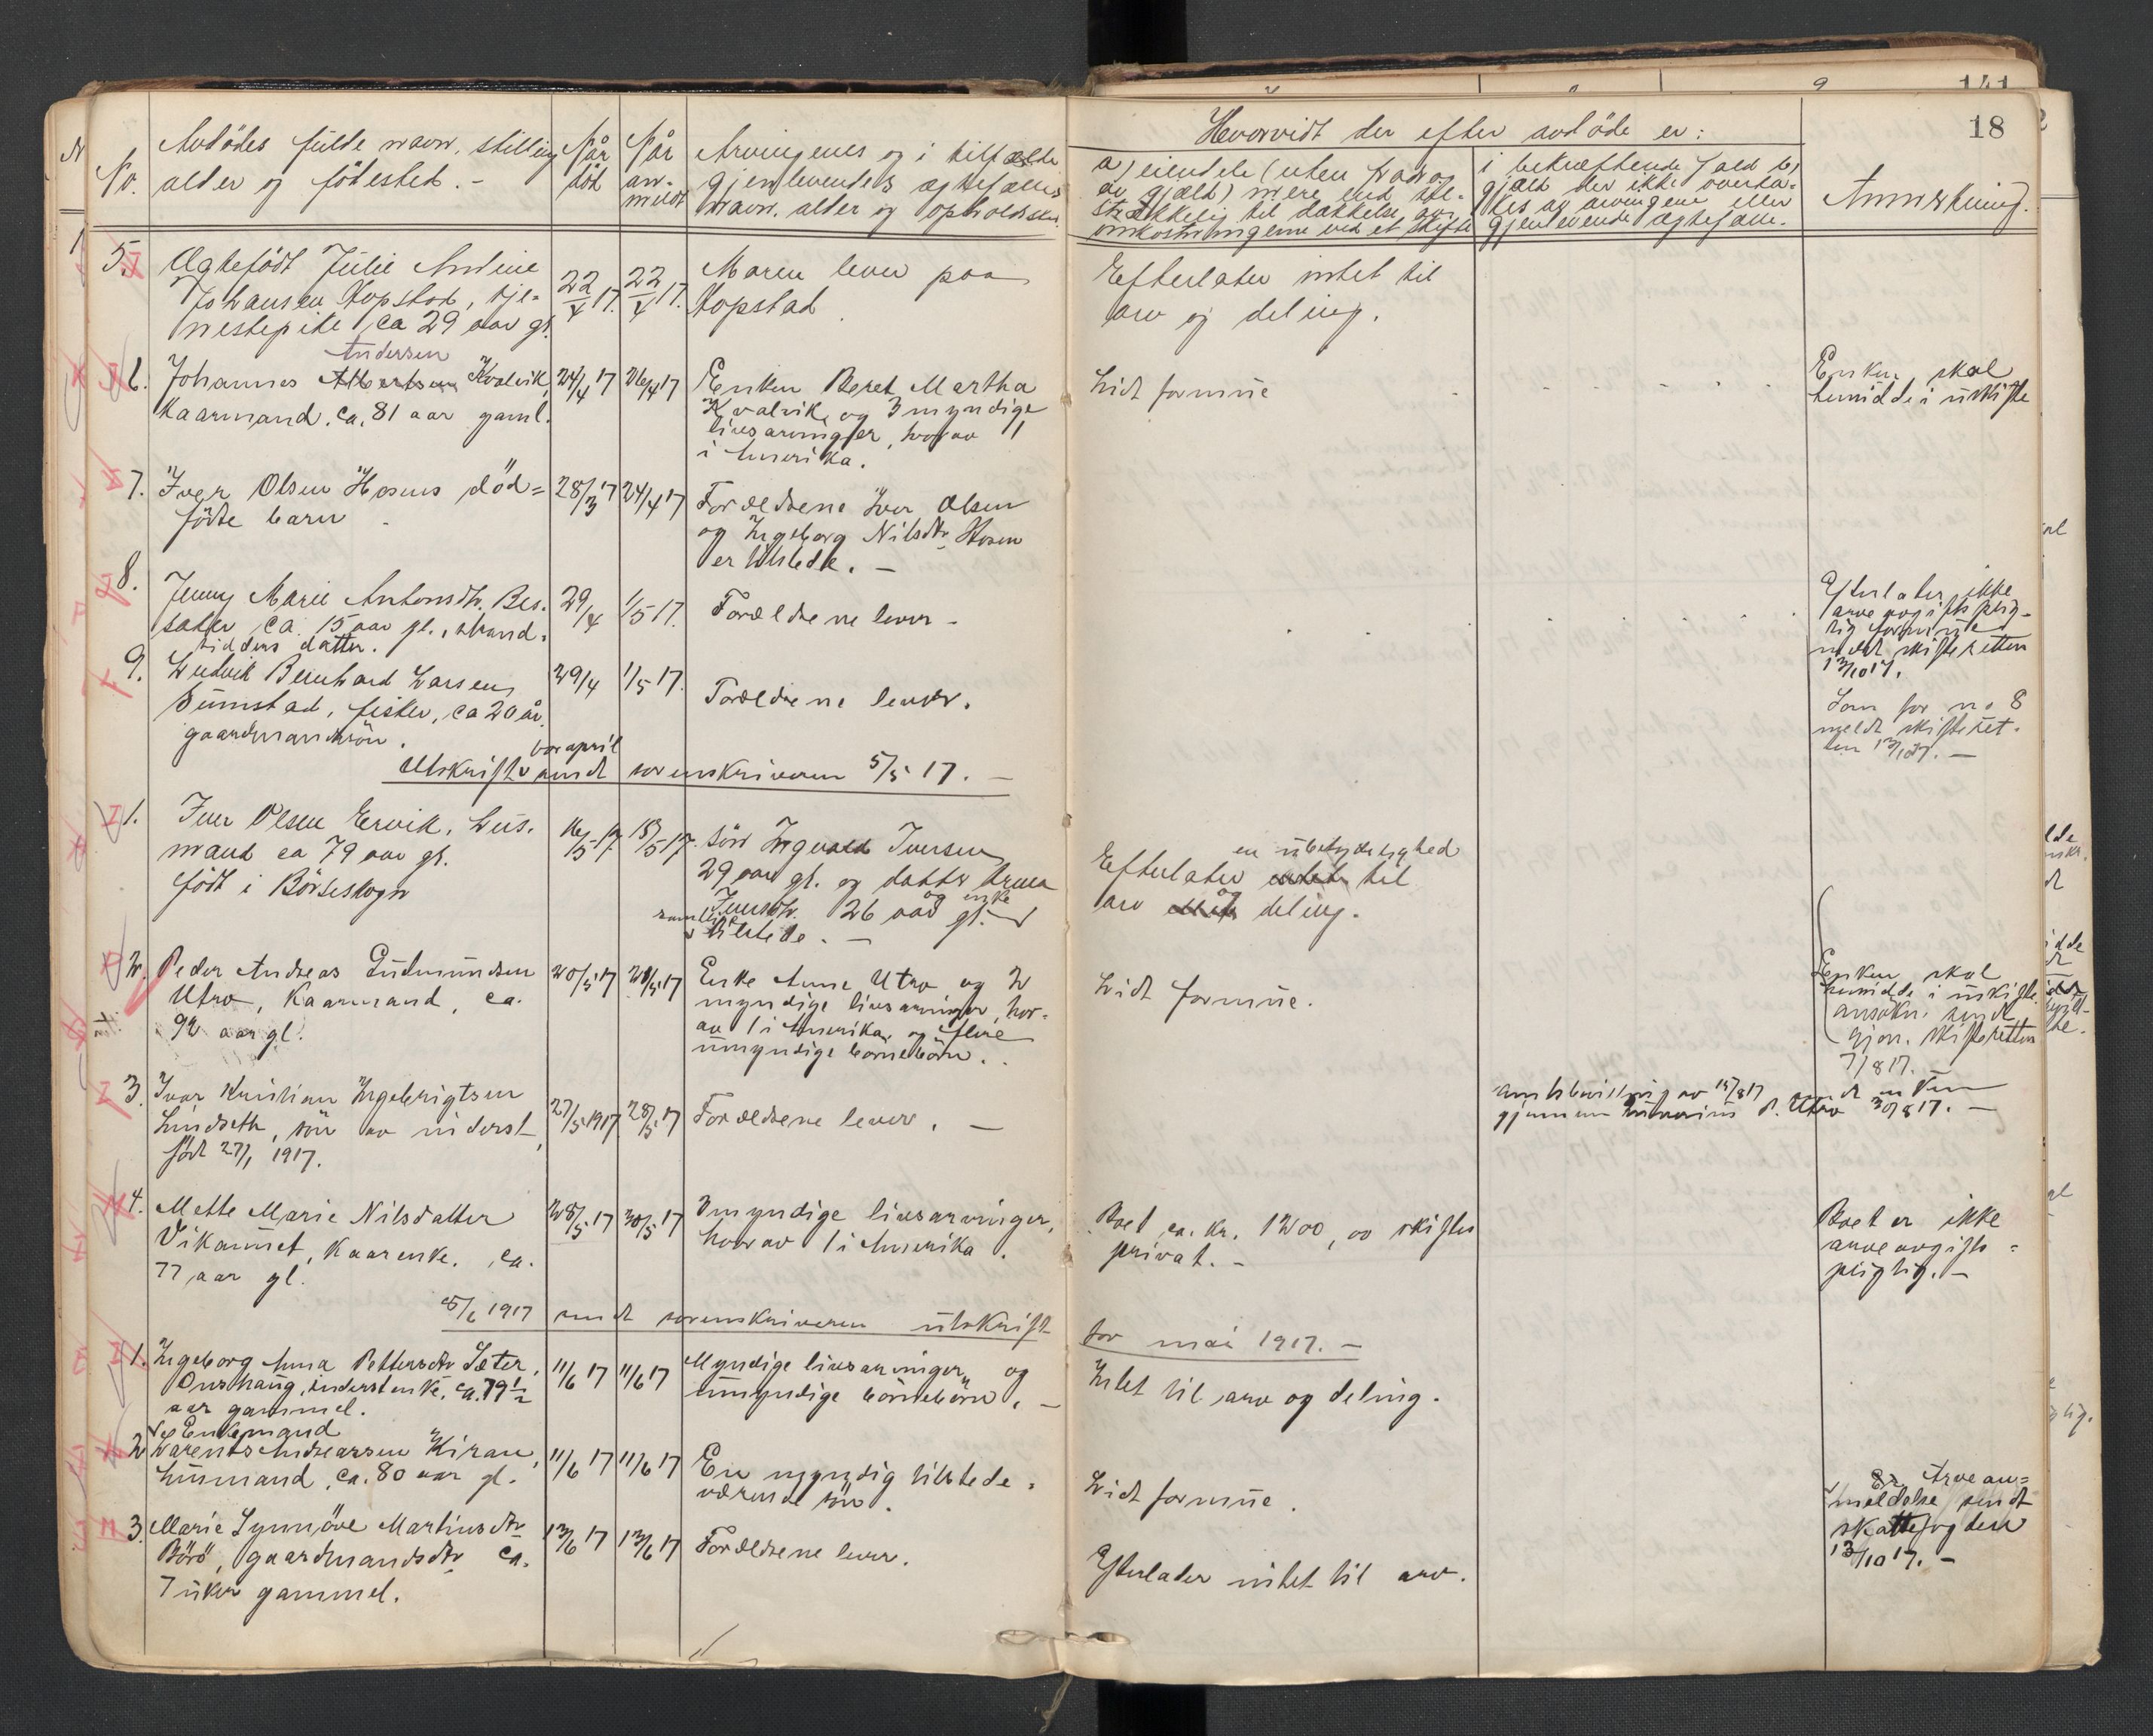 18
No.
Avdödes fulde navn, stilling
alder og födested. -
Når
död
Når
an-
meldt
Arvingenes og i tilfælde
gjenlevendes ægtefælles
navn, alder og opholdssted.
Hvorvidt der efter avdöde er:
a) eiendele (uten fradrag
av gjæld) mere end til-
strækkelig til dækkelse av
omkostningerne ved et skifte
i bekræftende fald b)
gjæld der ikke overta-
kes av arvingene eller
gjenlevende ægtefælle.
Anmerkning.
5. Ægtefödt Julie Andine
Johansen Kopstad, tje-
nestepike, ca 29 aar gl.
22/4 17. 22/4 17.
Moren lever paa
Kopstad.
Efterlater intet til
arv og deling.
6. Johannes Albertsen Kvalvik,
Andersen
Kaarmand, ca. 81 aar gaml.
24/4 17 26/4 17
Enken Beret Martha
Kvalvik og 3 myndige
livsarvinger, hvorav 1
i Amerika.
Lidt formue
Enken skal
henidde i uskifte
7. Iver Olsen Hosens död=
födte barn -
28/3 17 24/4 17
Forældrene Iver Olsen
og Ingeborg Nilsdtr Hosen
er tilstede. -
8. Jenny Marie Antonsdtr. Bes-
sater ca. 15 aar gl., strand-
sidders datter.
29/4 1/5 17.
Forældrene lever -
Efterlater ikke
arveavgiftsplig-
tig formue
meldt skifteretten
13/10 17.
9. Ludvik Bernhard Larsen
Sumstad, fisker, ca 20 år.
gaardmandssön.
29/4 1/5 17.
Forældrene lever.
Som for no 8
meldt skifteret-
ten 13/10 17. -
for april
Utskrift sendt sorenskriveren 5/5 17. -
1. Iver Olsen Ervik, hus-
mand ca 79 aar gl.
födt i Börseskogn
16/5 17. 18/5 17.
Sön Ingvald Iversen
29 aar gl. og datter Anna
Iversdtr. 26 aar gl. og enke
samtlige
tilstede. -
en ubetydelighed
Efterlater intet til
arv eller og deling.
2. Peder Andreas Gudmundsen
Utro, Kaarmand, ca.
92 aar gl.
20/5 17 21/5 17
Enke Anne Utro og 2
myndige livsarvinger, hvor-
av 1 i Amerika, og flere
umyndige börnebörn.
Lidt formue.
Enken skal
henidde i uskifte.
ansökn. sendt
gjen. skifteretten
7/8 17.
Amtsbevilling av 15/8 17 sendt enken
gjennem P. Utro 30/8 17. -
3. Ivar Kristian Ingebrigtsen
Lindseth, sön av inderst,
födt 27/1 1917.
27/5 1917. 28/5 17
Forældrene lever. -
4. Mette Marie Nilsdatter
Vikamnet, Kaarenke, ca.
77 aar gl.
28/5 17 30/5 17
3 myndige livsarvinger,
hvorav 1 i Amerika.
Boet ca. kr. 1200,00 skiftes
privat. -
Boet er ikke
arveavgifts=
pligtig. -
5/6 1917 sendt sorenskriveren utskrift
for mai 1917. -
1. Ingeborg Anna Pettersdtr Sæter,
Onshaug, inderstenke, ca. 79 1/2
aar gammel.
11/6 17 11/6 17
Myndige livsarvinger og
umyndige börnebörn. -
Intet til arv og deling.
Enkemand
2. Larents Andreassen Kiran,
husmand, ca. 80 aar gl.
11/6 17 11/6 17
En myndig tilstede-
værende sön.
Lidt formue.
Er Arvean=
meldelse sendt
skattefogden
13/10 17. -
3. Marie Synnöve Martinsdtr
Börö, gaardmandsdtr ca.
7 uker gammel.
13/6 17 13/6 17
Forældrene lever.
Efterlater intet til arv.